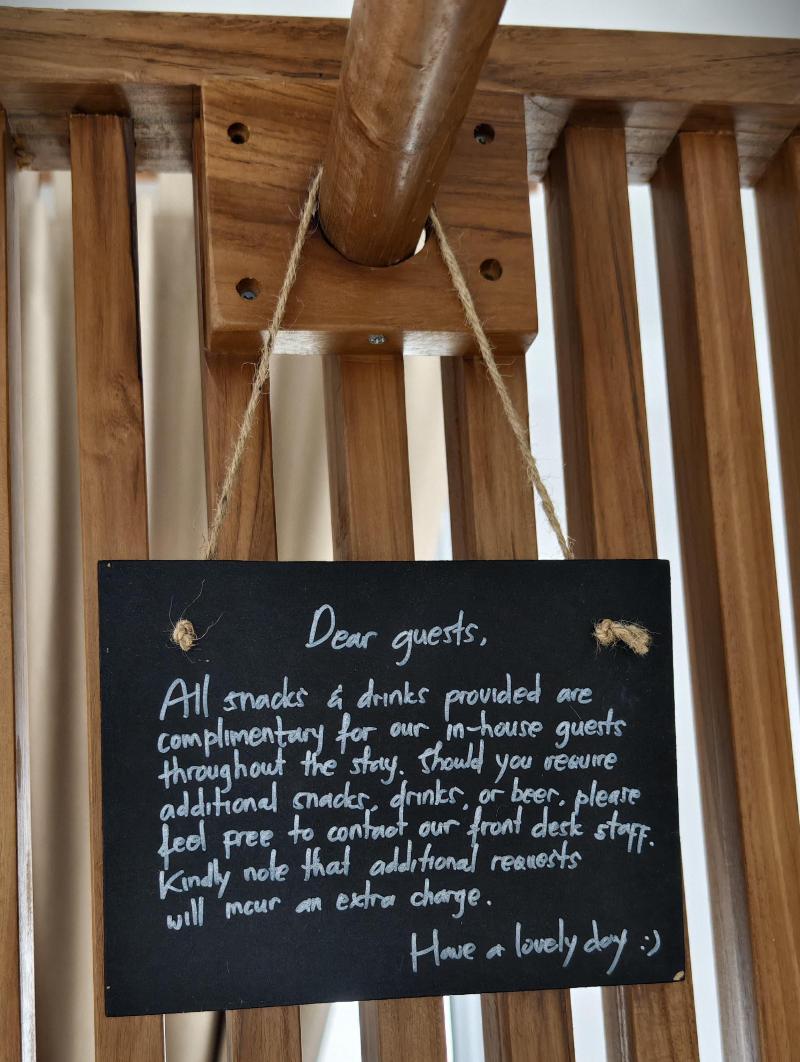 Dear guests,
All snacks & drinks provided are
complimentary for our in-house guests
throughout the stay. Should you require
additional snacks, drinks, or beer, please
feel free to contact our front desk staff.
Kindly note that additional requests
will incur an extra charge.
Have a lovely day :)